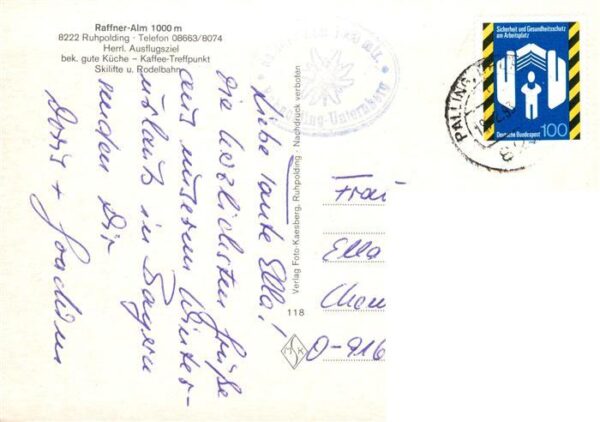 Raffner-Alm 1000 m
8222 Ruhpolding · Telefon 08663/8074
Herrl. Ausflugsziel
bek. gute Küche – Kaffee-Treffpunkt
Skilifte u. Rodelbahn
Liebe Tante Ella!
Die herzlichsten Grüße
aus unserem Winter-
urlaub in Bayern
senden Dir
Doris + Joachim
Verlag Foto-Kaesberg, Ruhpolding · Nachdruck verboten
118
Ruhpolding-Unternberg
Sicherheit und Gesundheitsschutz
am Arbeitsplatz
Deutsche Bundespost 100
PALLING
Frau
Ella
O-916